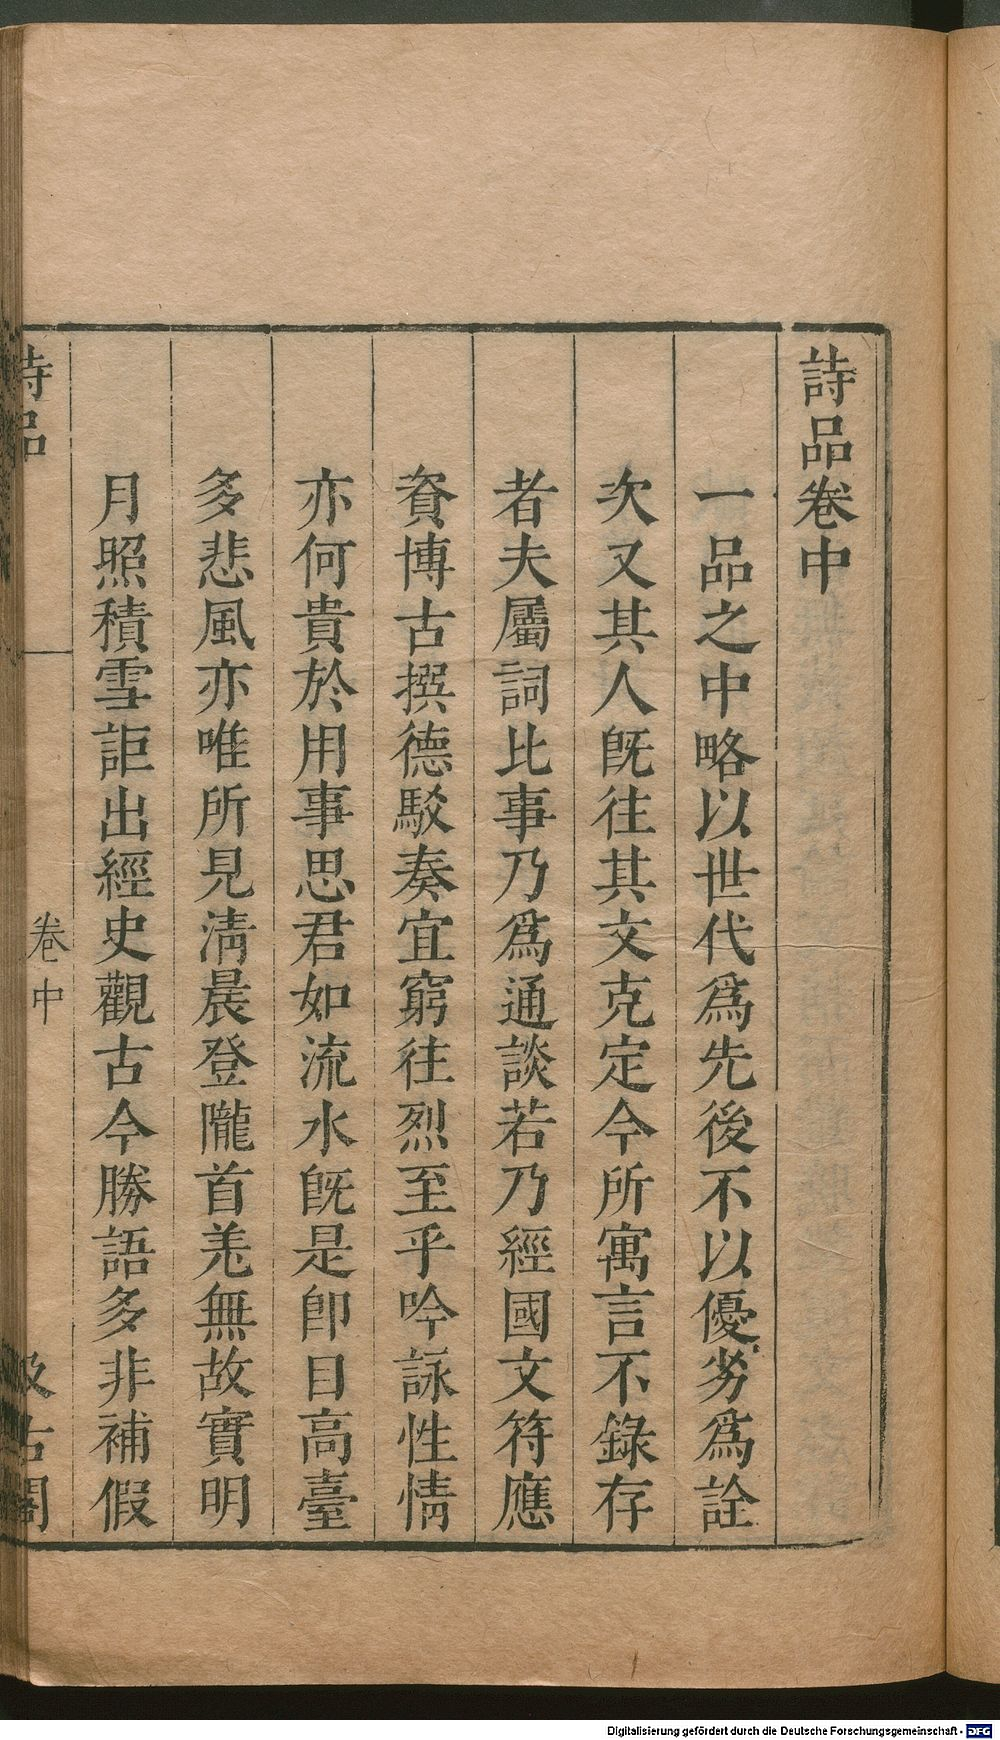 詩品卷中
一品之中略以世代爲先後不以優劣爲詮
次又其人旣往其文克定今所寓言不錄存
者夫屬詞比事乃爲通談若乃經國文符應
資博古撰德駁奏宜窮往烈至乎吟詠性情
亦何貴於用事思君如流水旣是卽目高臺
多悲風亦唯所見淸晨登隴首羌無故實明
月照積雪詎出經史觀古今勝語多非補假
詩品
卷中
汲古閣
Digitalisierung gefördert durch die Deutsche Forschungsgemeinschaft - DFG